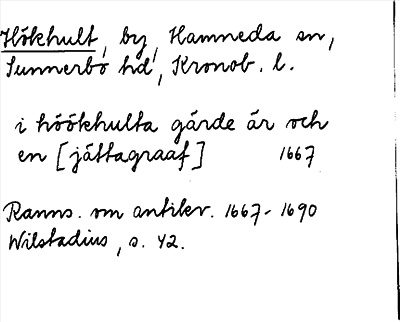 Hökhult, by, Hamneda sn,
Sunnerbo hd, Kronob. l.
i höökhulta gärde är och
en [jättagraaf] 1667
Ranns. om antikv. 1667-1690
Wilstadius, s. 42.